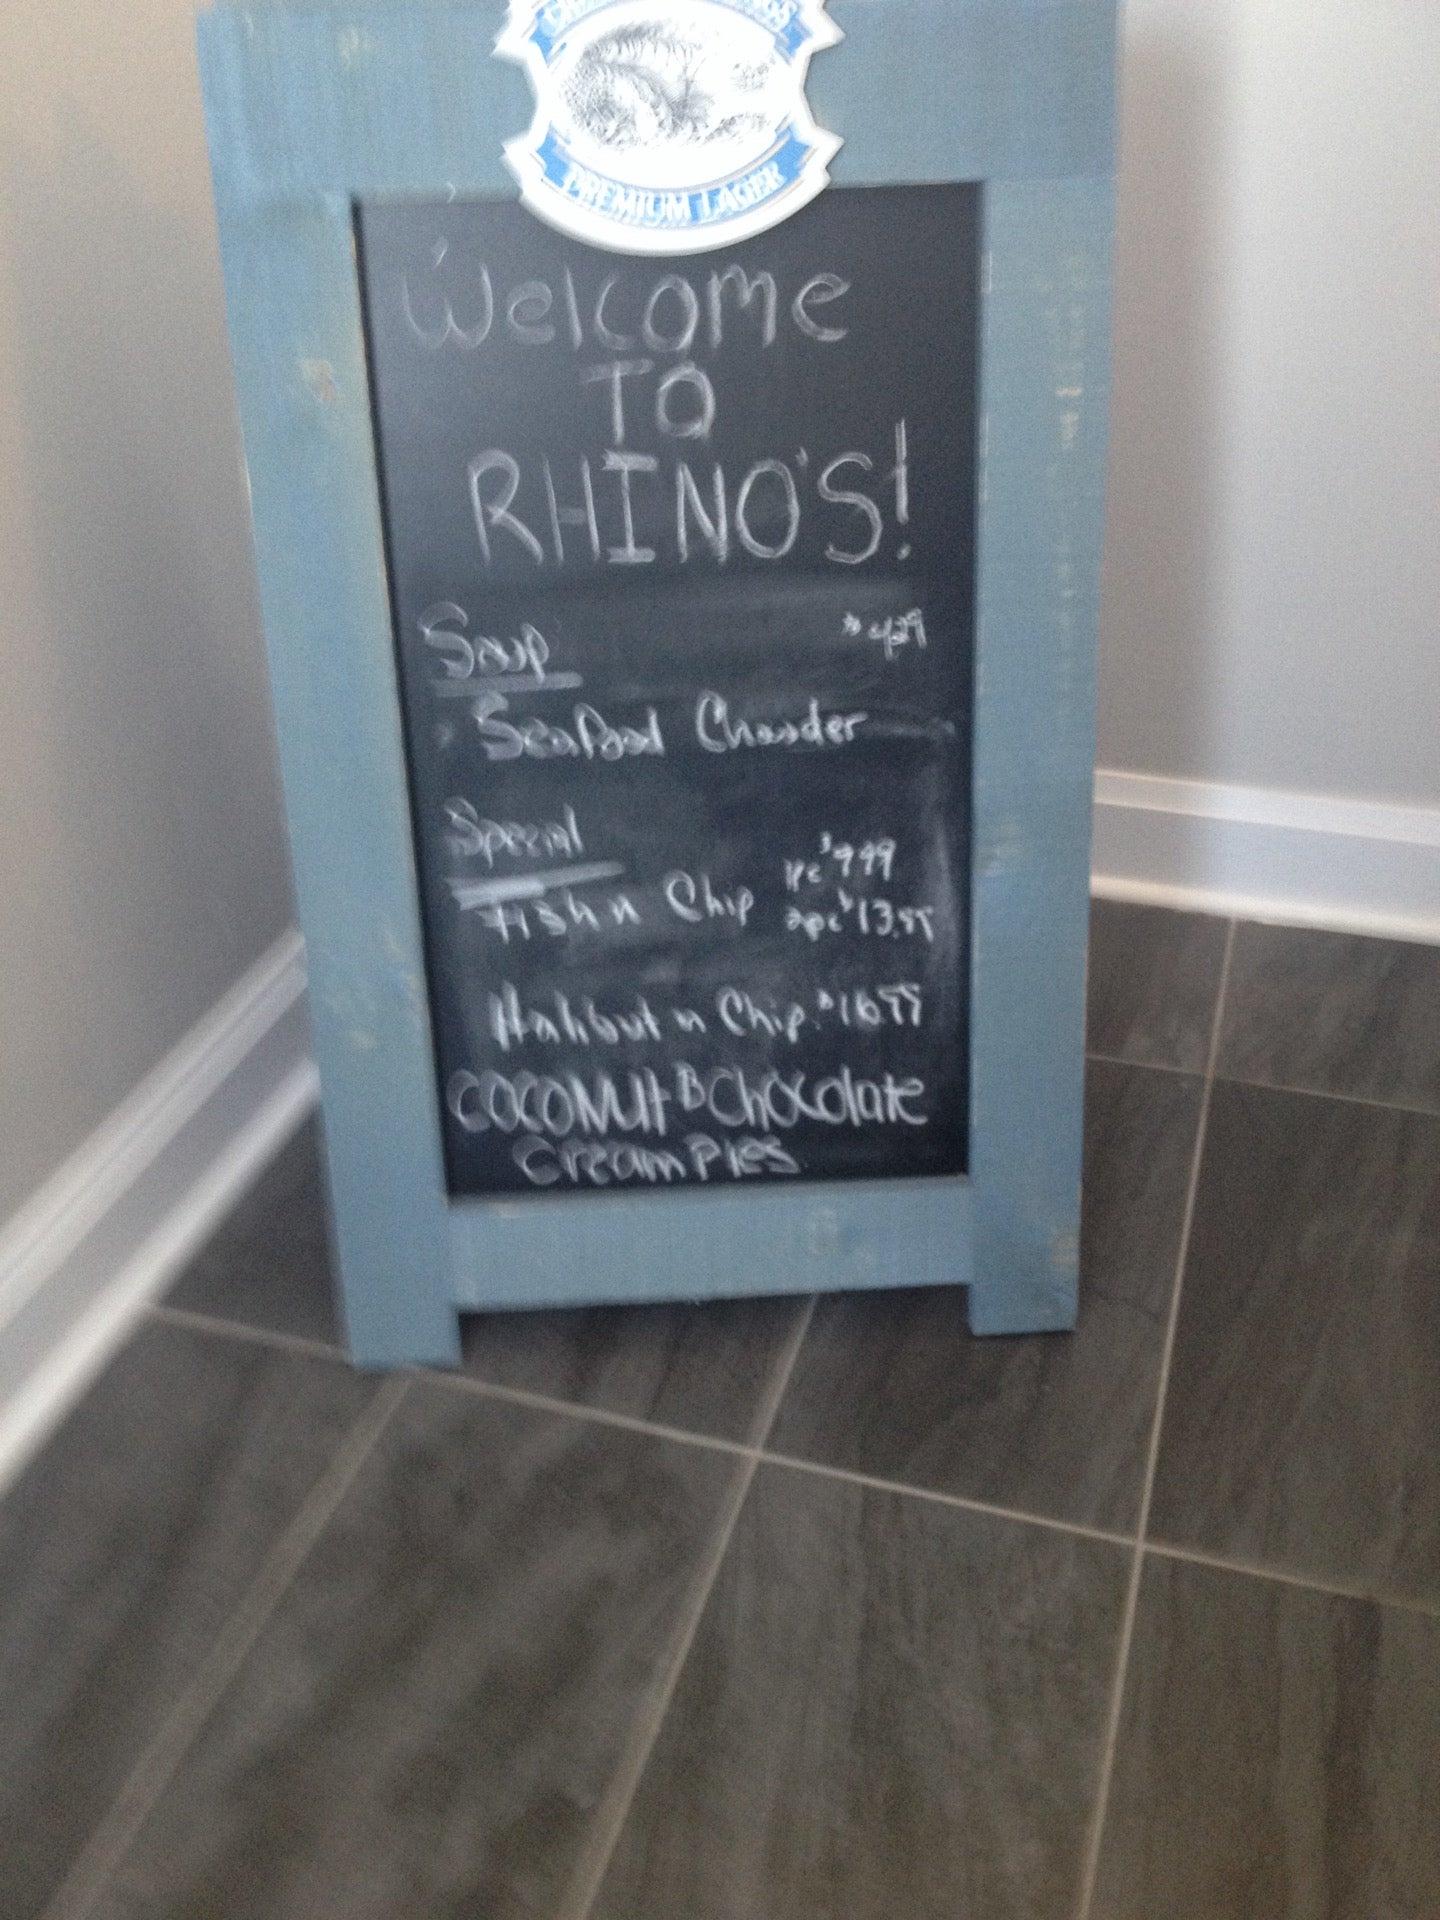 PREMIUM LAGER
Welcome
TO
RHINO'S!
Soup $4.29
Seafood Chowder
Special
Fish n Chip 1pc $9.99
2pc $13.99
Halibut n Chip. $16.99
COCONUt & Chocolate
Cream Pies